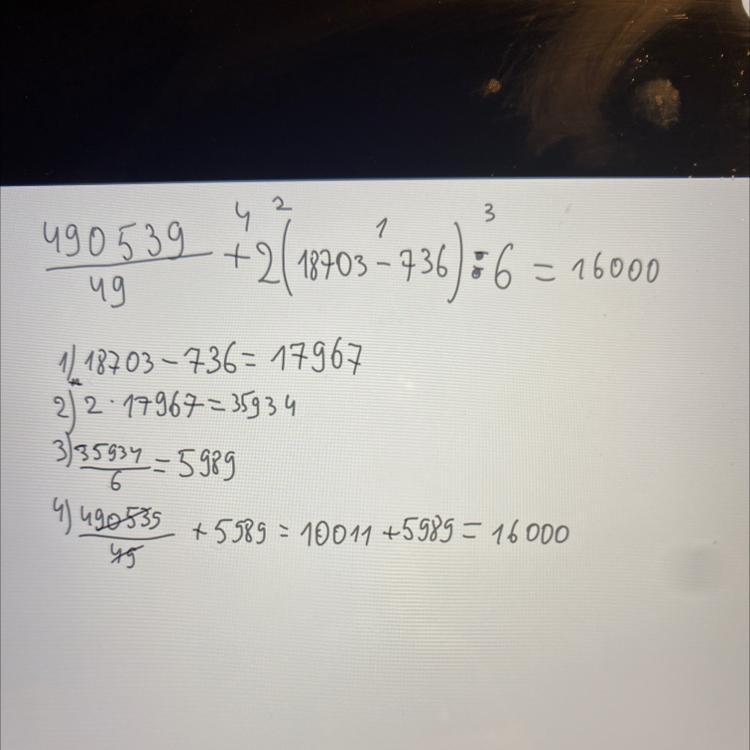 490539/49 + 2(18703 − 736) : 6 = 16000
4 2 1 3
1) 18703 − 736 = 17967
2) 2 · 17967 = 35934
3) 35934/6 = 5989
4) 490539/49 + 5989 = 10011 + 5989 = 16000